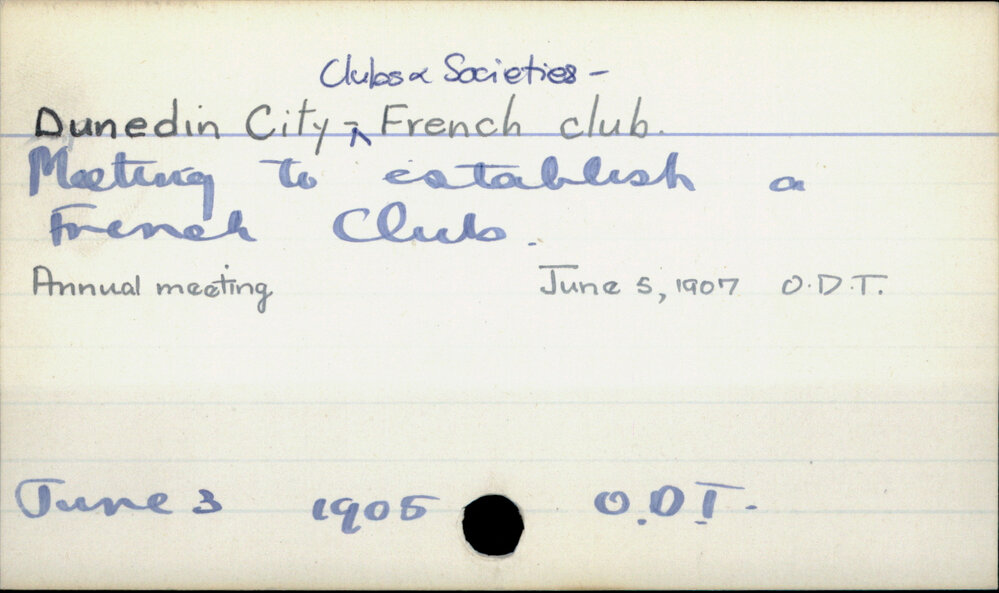 Clubs & Societies -
Dunedin City - ^ French club.
Meeting to establish a
French Club.
Annual meeting June 5, 1907 O.D.T.
June 3 1905 O.D.T.